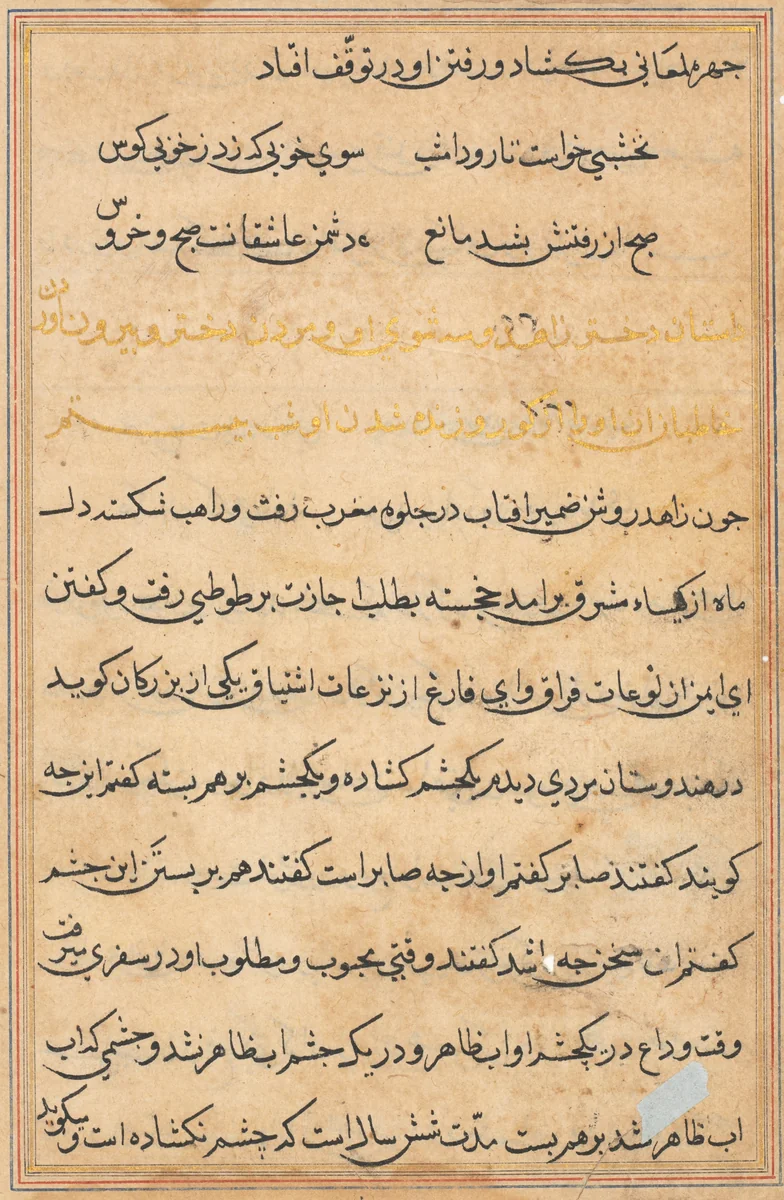 جهره لمعاني بكشاد و رفتن او در توقّف افتاد
نخشبي خواست تا رود امشب سوي خوبي كه زد ز خوبي كوس
صبح از رفتنش بشد مانع دشمن عاشقانست صبح و خروس
داستان دختر زاهد و سه شوي او و مردن دختر و بيرون آوردن
خاطبان ان او را از كور و زنده شدن او شب بيستم
جون زاهد روشن ضمير افتاب در جلوه مغرب رفت و راهب شكسته دل
ماه از كيساء مشرق برامد خجسته بطلب اجازت بر طوطي رفت و كفتن
اي ايمن از لوعات فراق و اي فارغ از نزعات اشتياق يكي از بزركان كويد
در هندوستان مردي ديدم يكجشم كشاده و يكجشم بر هم بسته كفتم اين جه
كويند كفتند صابر كفتم او از جه صابر است كفتند هم بر بستن اين جشم
كفتم ان سخن جه باشد كفتند وقتي محبوب و مطلوب او در سفري ميرفت
وقت وداع در يكچشم او اب ظاهر و در يك جشم اب ظاهر نشد و جشمي كه اب
اب ظاهر نشد بر هم بست مدّت شش سال است كه چشم نكشاده است و ميكويد